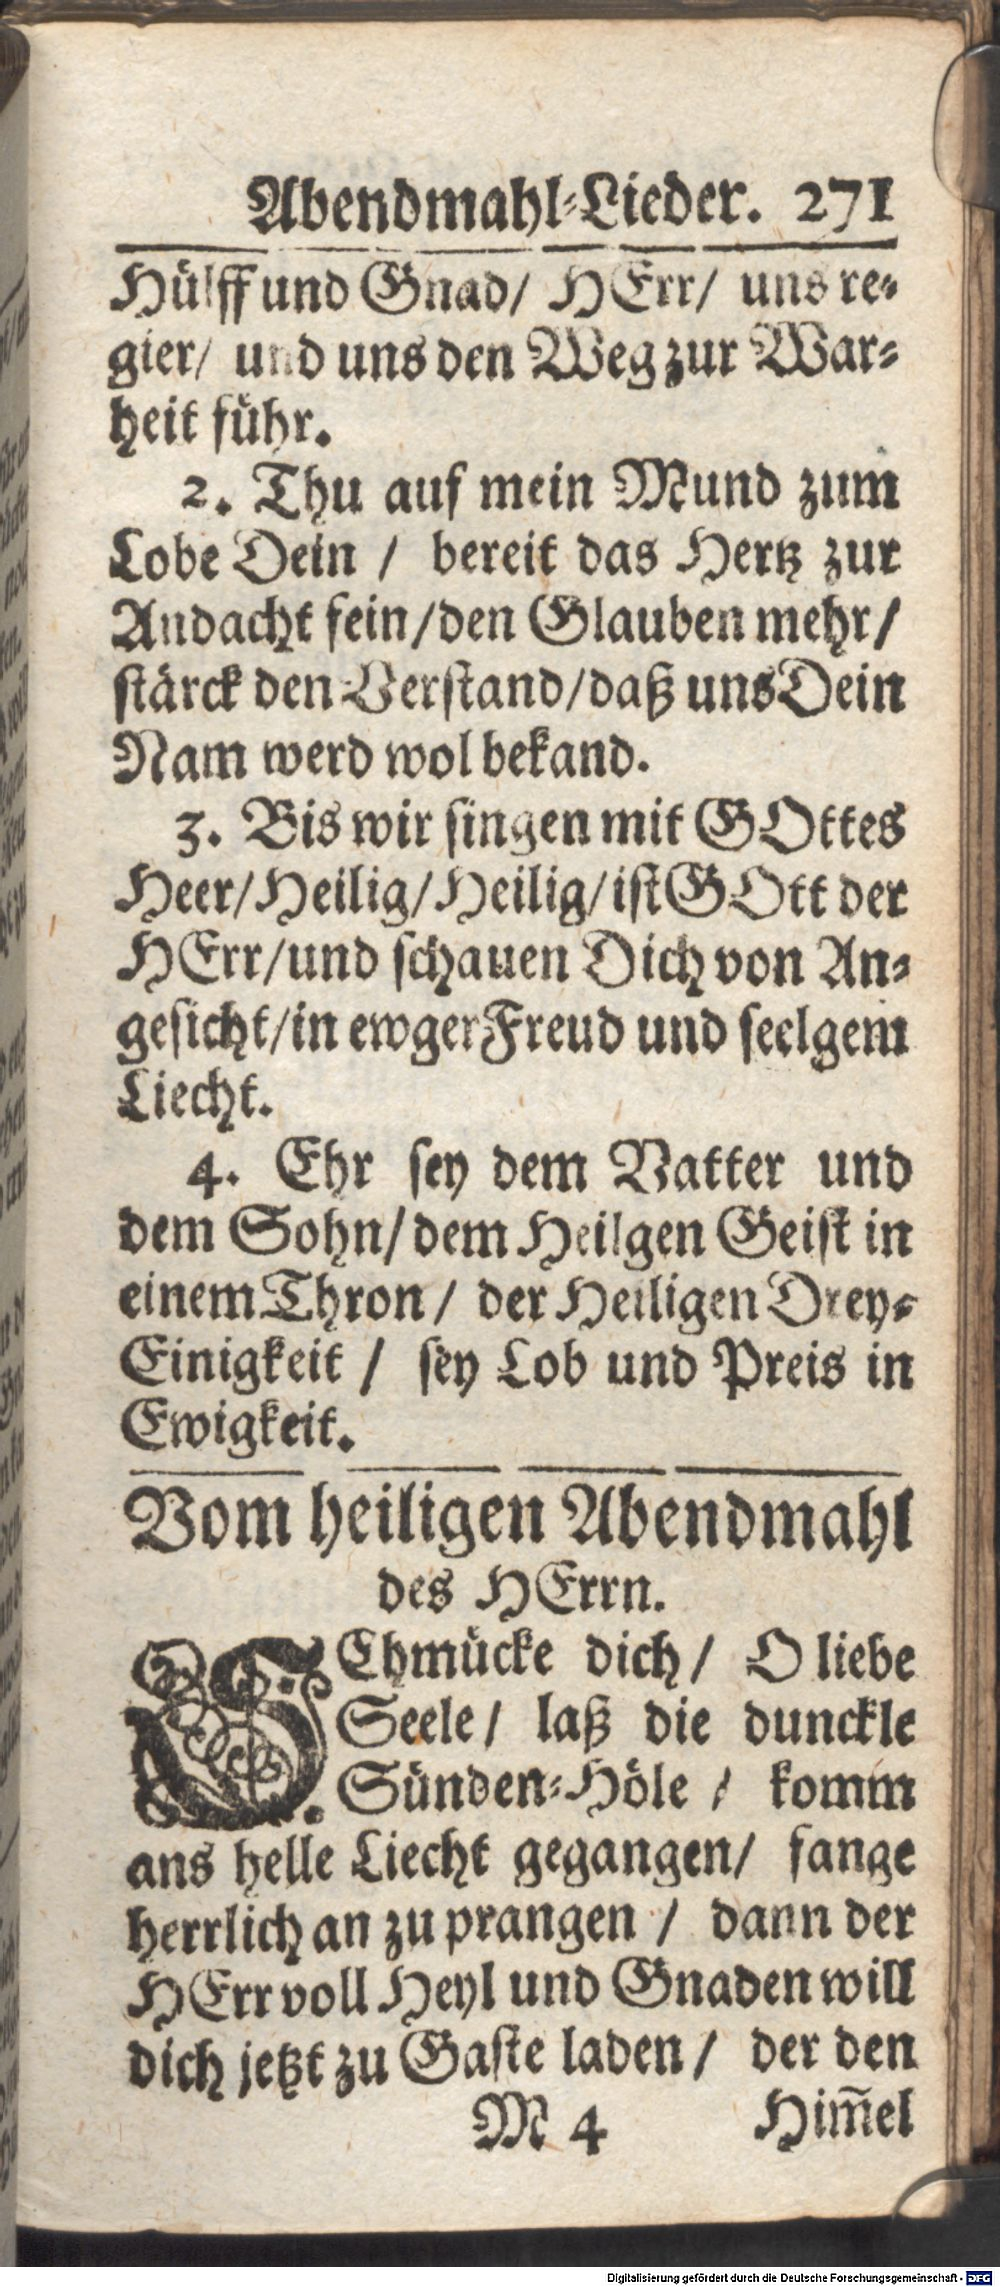 Abendmahl-Lieder. 271
Hülff und Gnad/ HErr/ uns re-
gier/ und uns den Weg zur War-
heit führ.
2. Thu auf mein Mund zum
Lobe Dein / bereit das Hertz zur
Andacht fein/den Glauben mehr/
stärck den Verstand/daß uns Dein
Nam werd wol bekand.
3. Bis wir singen mit GOttes
Heer/Heilig/Heilig/ist GOtt der
HErr/und schauen Dich von An-
gesicht/in ewger Freud und seelgem
Liecht.
4. Ehr sey dem Vatter und
dem Sohn/dem Heilgen Geist in
einem Thron / der Heiligen Drey-
Einigkeit / sey Lob und Preis in
Ewigkeit.
Vom heiligen Abendmahl
des HErrn.
SChmücke dich/ O liebe
Seele/ laß die dunckle
Sünden-Höle / komm
ans helle Liecht gegangen/ fange
herrlich an zu prangen / dann der
HErr voll Heyl und Gnaden will
dich jetzt zu Gaste laden/ der den
M 4 Him̄el
Digitalisierung gefördert durch die Deutsche Forschungsgemeinschaft - DFG